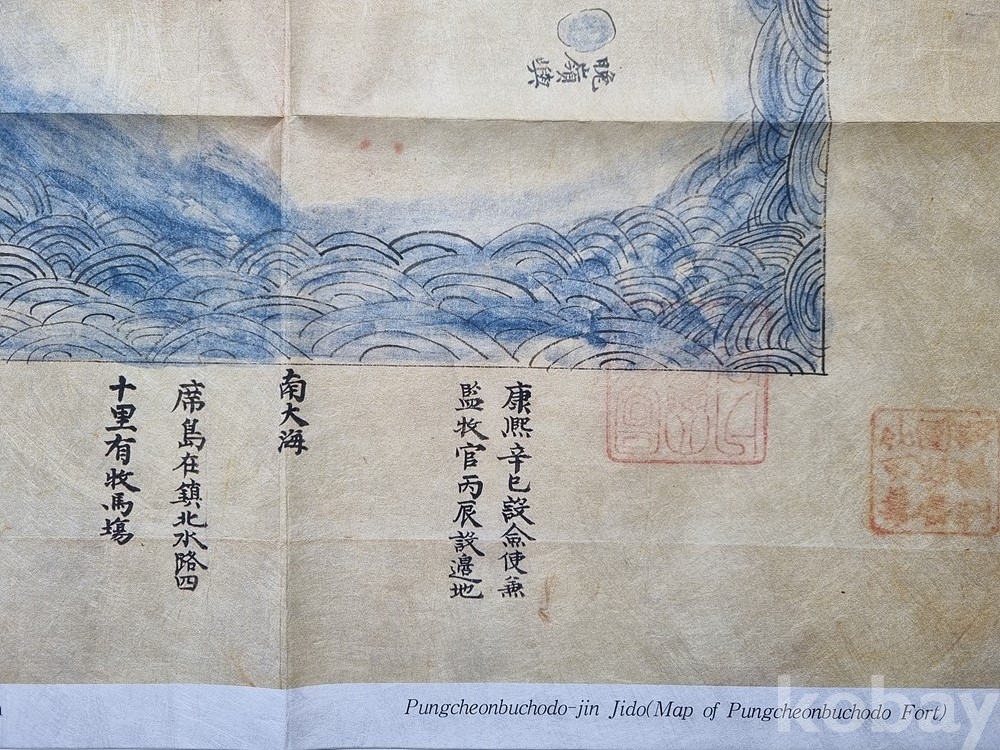 晚嶺嶼
康熙辛巳設僉使兼
監牧官丙辰設邊地
南大海
席島在鎮北水路四
十里有牧馬塲
Pungcheonbuchodo-jin Jido(Map of Pungcheonbuchodo Fort)
kobay